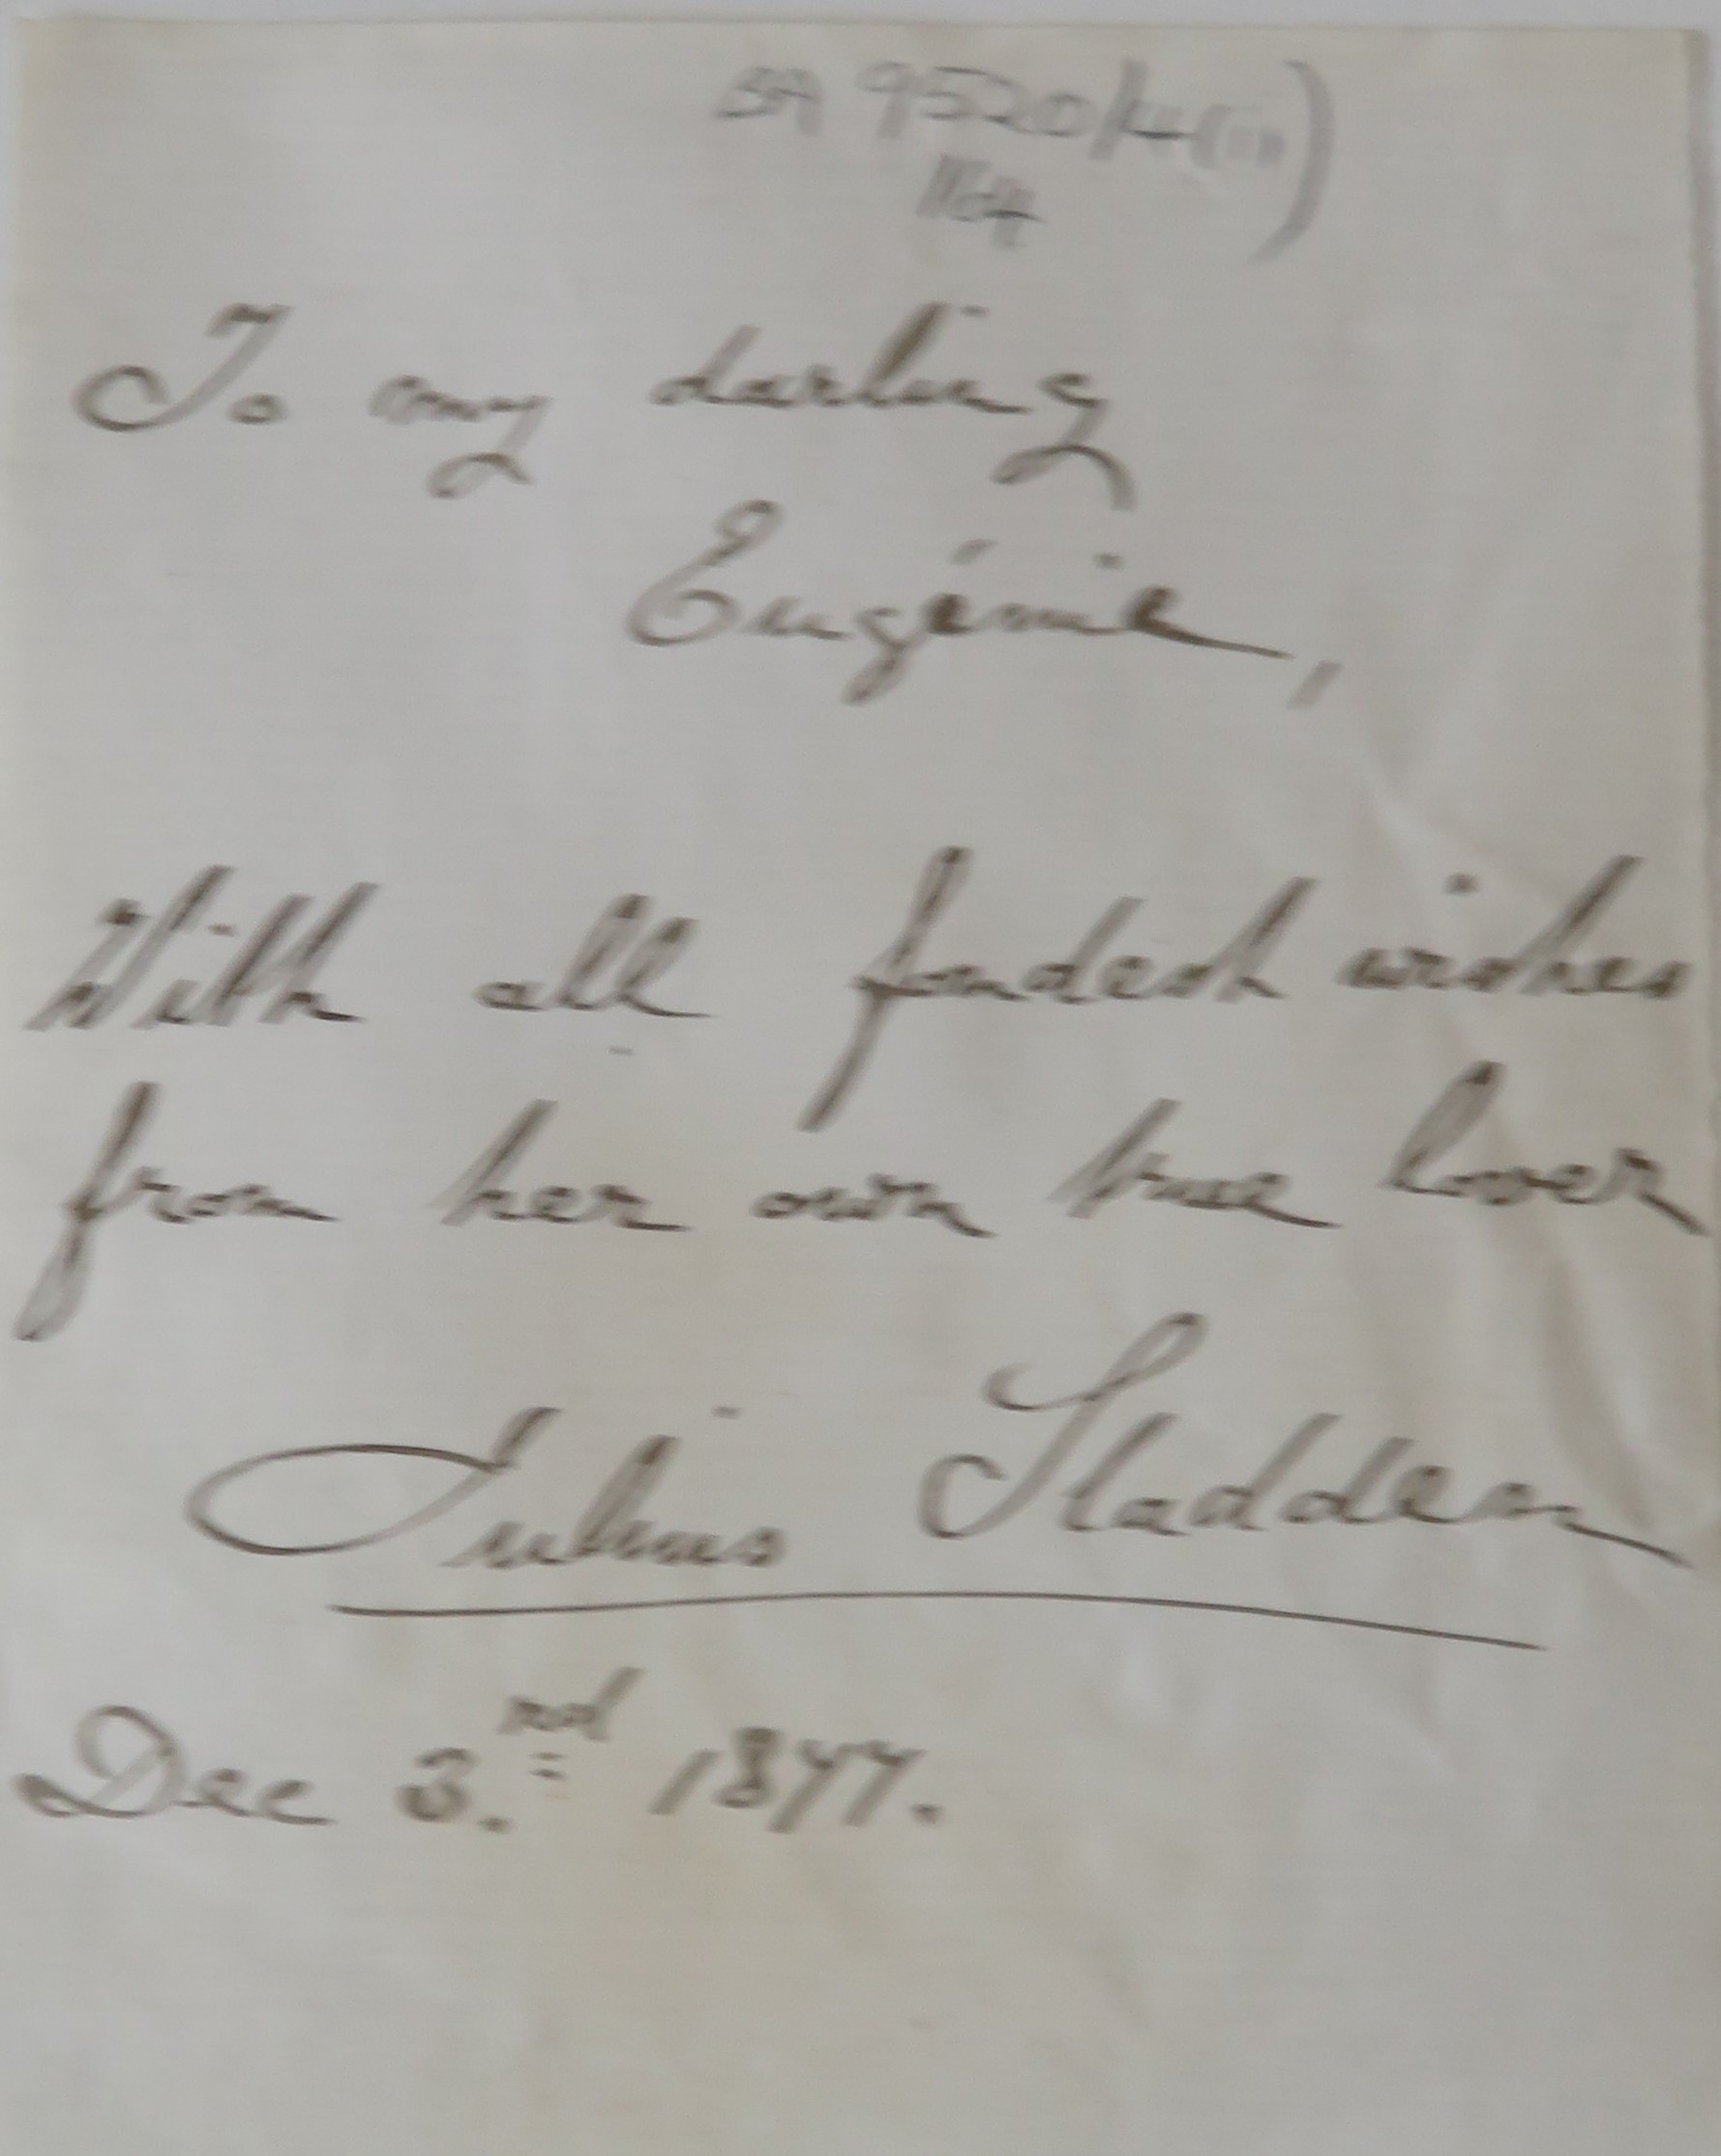 BA 9520/4(iii)
164
To my darling
Eugénie,
With all fondest wishes
from her own true lover
Julius Sladden
Dec 3.rd 1877.